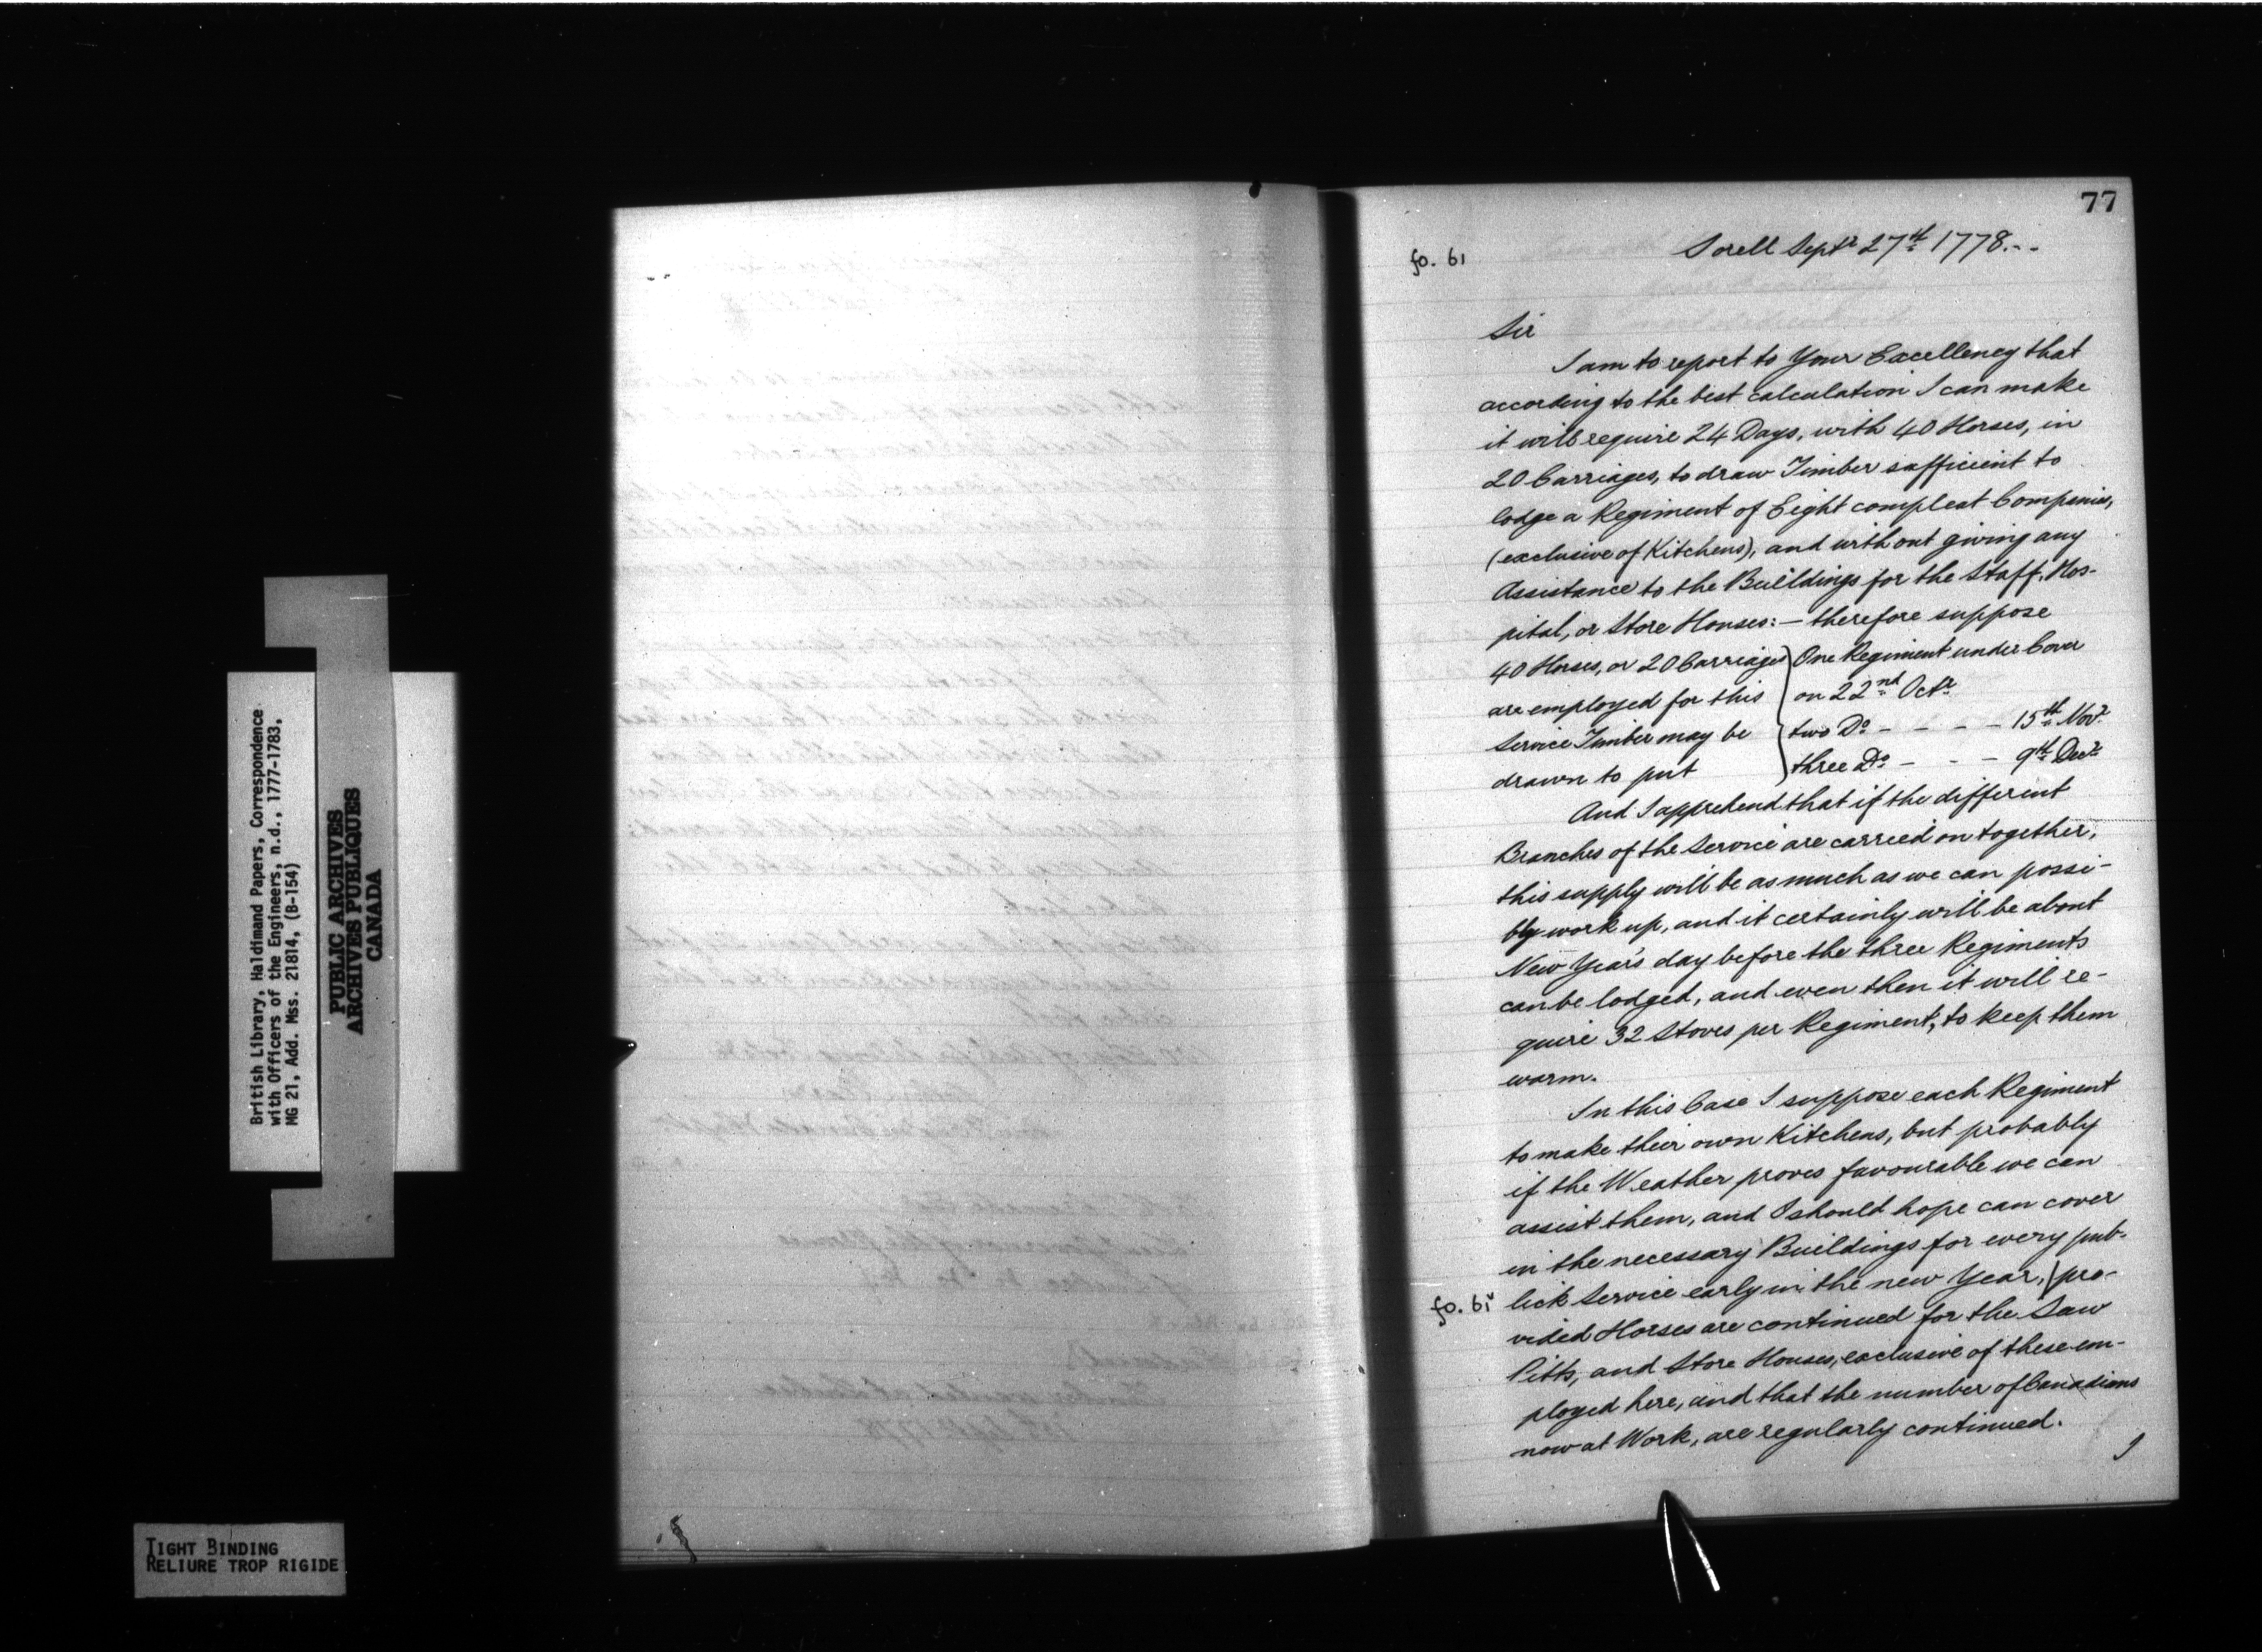 77
fo. 61
Sorell Septr 27th 1778...
Sir
I am to report to Your Excellency that
according to the best calculation I can make
it will require 24 Days, with 40 Horses, in
20 Carriages, to draw Timber sufficient to
lodge a Regiment of Eight compleat Companies,
(exclusive of Kitchens), and without giving any
Assistance to the Buildings for the Staff, Hos-
pital, or Store Houses: — therefore suppose
40 Horses, or 20 Carriages
are employed for this
Service Timber may be
drawn to put
One Regiment under Cover
on 22nd Octr
two Do - - - - 15th Novr
three Do - - - 9th Decr
And I apprehend that if the different
Branches of the Service are carried on together,
this supply will be as much as we can possi-
bly work up, and it certainly will be about
New Year's day before the three Regiments
can be lodged, and even then it will re-
quire 32 Stoves per Regiment, to keep them
warm.
In this Case I suppose each Regiment
to make their own Kitchens, but probably
if the Weather proves favourable we can
assist them, and I should hope can cover
in the necessary Buildings for every pub-
fo. 61v
lick Service early in the new Year, | pro-
vided Horses are continued for the Saw
Pitts, and Store Houses, exclusive of these em-
ployed here, and that the number of Canadians
now at Work, are regularly continued.
I
British Library, Haldimand Papers, Correspondence
with Officers of the Engineers, n.d., 1777-1783,
MG 21, Add. Mss. 21814, (B-154)
PUBLIC ARCHIVES
ARCHIVES PUBLIQUES
CANADA
TIGHT BINDING
RELIURE TROP RIGIDE